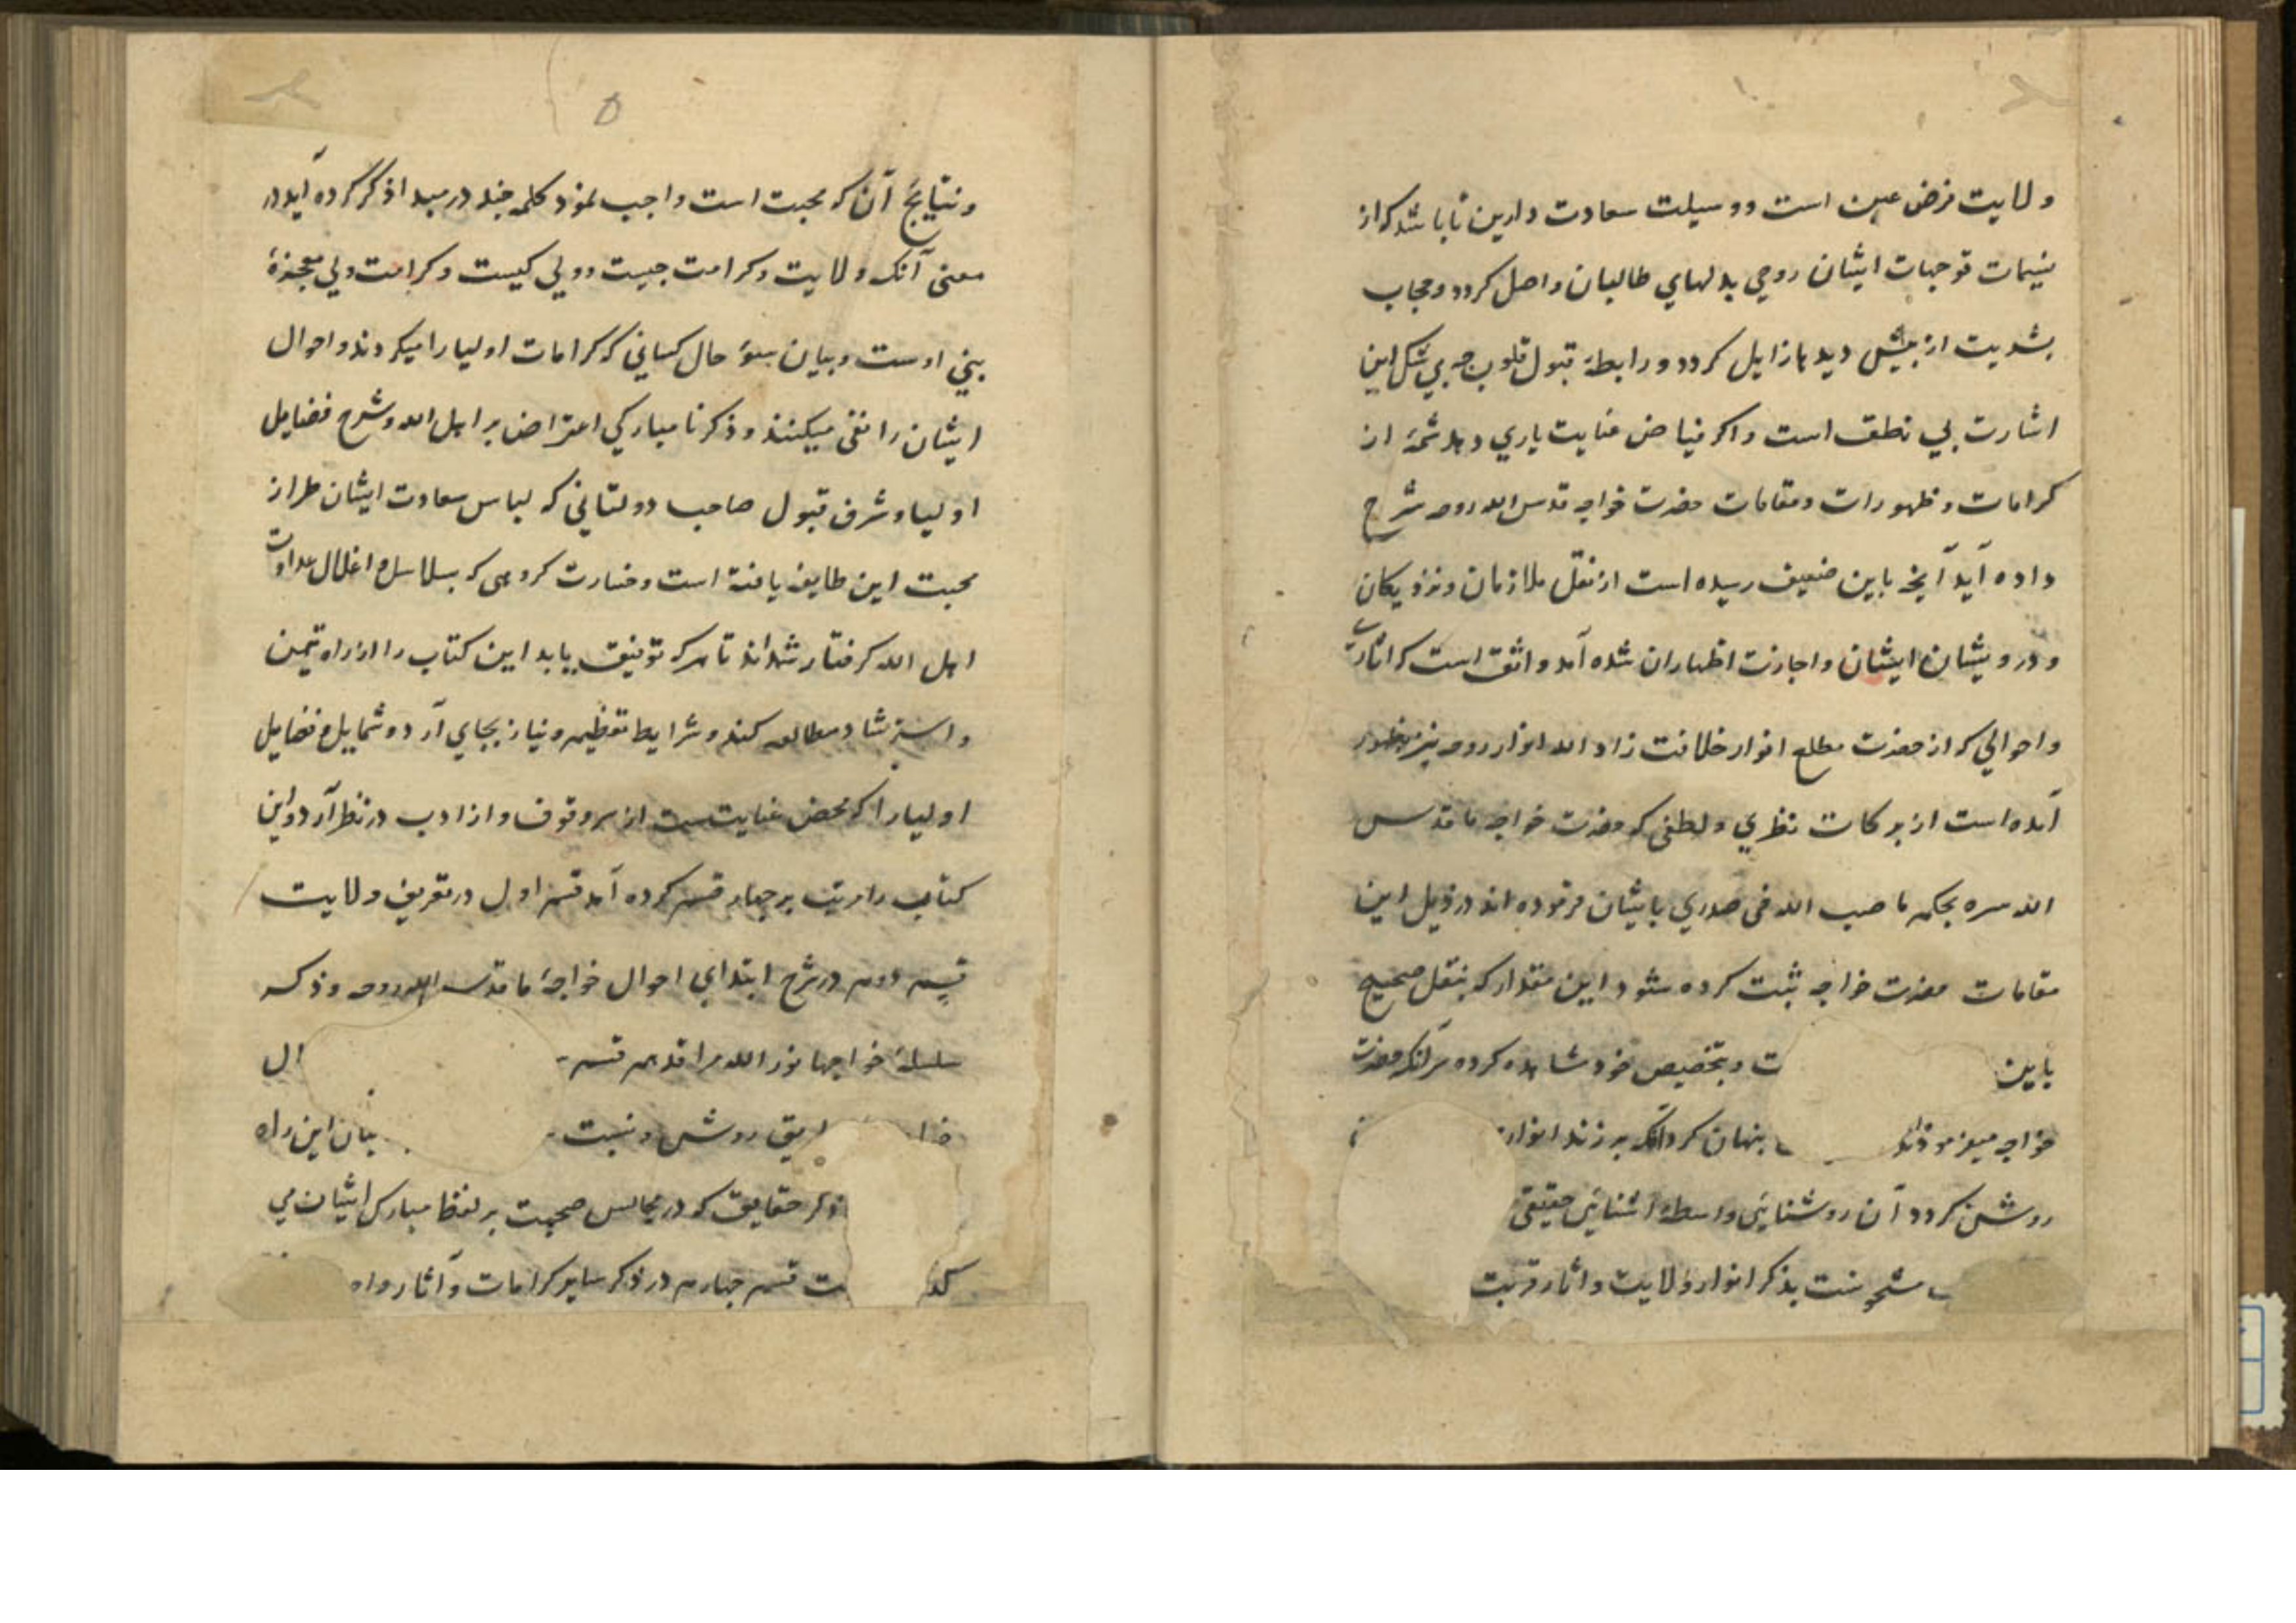 ولایت فرض عین است و وسیلت سعادت دارین تا باشد که از
نسمات توجهات ایشان روحی بدلهای طالبان واصل گردد و حجاب
بشریت از پیش دیدها زایل گردد و رابطهٔ قبول قلوب این
اشارت بی نطق است و اگر فیاض عنایت یاری دهد شمهٔ از
کرامات و ظهورات و مقامات حضرت خواجه قدس الله روحه شرح
داده آید آنچه باین ضعیف رسیده است از نقل ملازمان و نزدیکان
و درویشان ایشان و اجازت اظهار ان شده آمد واثق است که اثار
و احوالی که از حضرت مطلع انوار خلافت زاد الله انوار روحه نیز بظهور
آمده است از برکات نظری و لطفی که حضرت خواجه ما قدس
الله سره بحکم ما صب الله فی صدری بایشان فرموده اند در ذیل این
مقامات حضرت خواجه ثبت کرده شود این مقدار که بنقل صحیح
باین ت و بتخصیص خود مشاهده کرده حضرت
خواجه میفرمودند پنهان کرد انک
روشن گردد آن روشنایی واسطهٔ اشنایی حقیقی
مشحونست بذکر انوار ولایت و اثار قربت
و نتایج آن که محبت است واجب نمود کلمهٔ چند در مبدا ذکر کرده آید در
معنی آنک ولایت و کرامت چیست و ولی کیست و کرامت ولی معجزهٔ
نبی اوست و بیان سوء حال کسانی که کرامات اولیا را میکردند و احوال
ایشان را نفی میکنند و ذکر نامبارکی اعتراض بر اهل الله و شرح فضایل
اولیا و شرف قبول صاحب دولتانی که لباس سعادت ایشان طراز
محبت این طایفه یافته است و خسارت گروهی که بسلاسل و اغلال عداوت
اهل الله گرفتار شده اند تا هر که توفیق یابد این کتاب را از راه تیمن
و استرشاد مطالعه کند و شرایط تعظیم و نیاز بجای آرد و شمایل و فضایل
اولیا را که محض عنایتست از سر وقوف و از ادب در نظر آرد و این
کتاب را مرتب بر چهار قسم کرده آمد قسم اول در تعریف ولایت
قسم دوم در شرح ابتدای احوال خواجهٔ ما قدس الله روحه و ذکر
سلسلهٔ خواجها نور الله مراقدهم قسم ال
روش و نسبت بیان این راه
ذکر حقایق که در مجالس صحبت بر لفظ مبارک ایشان می
ت قسم چهارم در ذکر سایر کرامات و آثار و